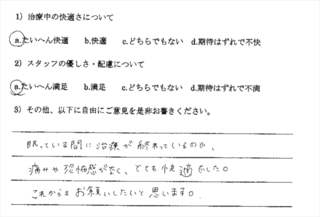 1）治療中の快適さについて
a.たいへん快適 b.快適 c.どちらでもない d.期待はずれで不快
2）スタッフの優しさ・配慮について
a.たいへん満足 b.満足 c.どちらでもない d.期待はずれで不満
3）その他、以下に自由にご意見を是非お書きください。
眠っている間に治療が終わっているので、
痛みや恐怖感がなく、とても快適でした。
これからもお願いしたいと思います。